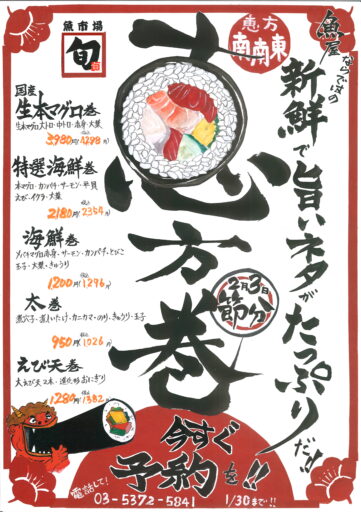 魚市場
旬
恵方
南南東
恵方巻
魚屋ならではの
新鮮で旨いネタが
たっぷりだ!!
2月3日
節分
国産
生本マグロ巻
生本マグロ大トロ・中トロ・赤身・大葉
3,980円 税込4298円
特選海鮮巻
本マグロ・カンパチ・サーモン・平貝
えび・イクラ・大葉
2180円 税込2354円
海鮮巻
サーモン・カンパチ・とびこ
玉子・大葉・きゅうり
1200円 税込1296円
太巻
煮穴子・煮しいたけ・カニカマ・のり・きゅうり・玉子
950円 税込1026円
えび天巻
大えび天2本・進化形おにぎり
1280円 税込1382円
今すぐ
予約を!!
電話して!
03-5372-5841
1/30まで!!